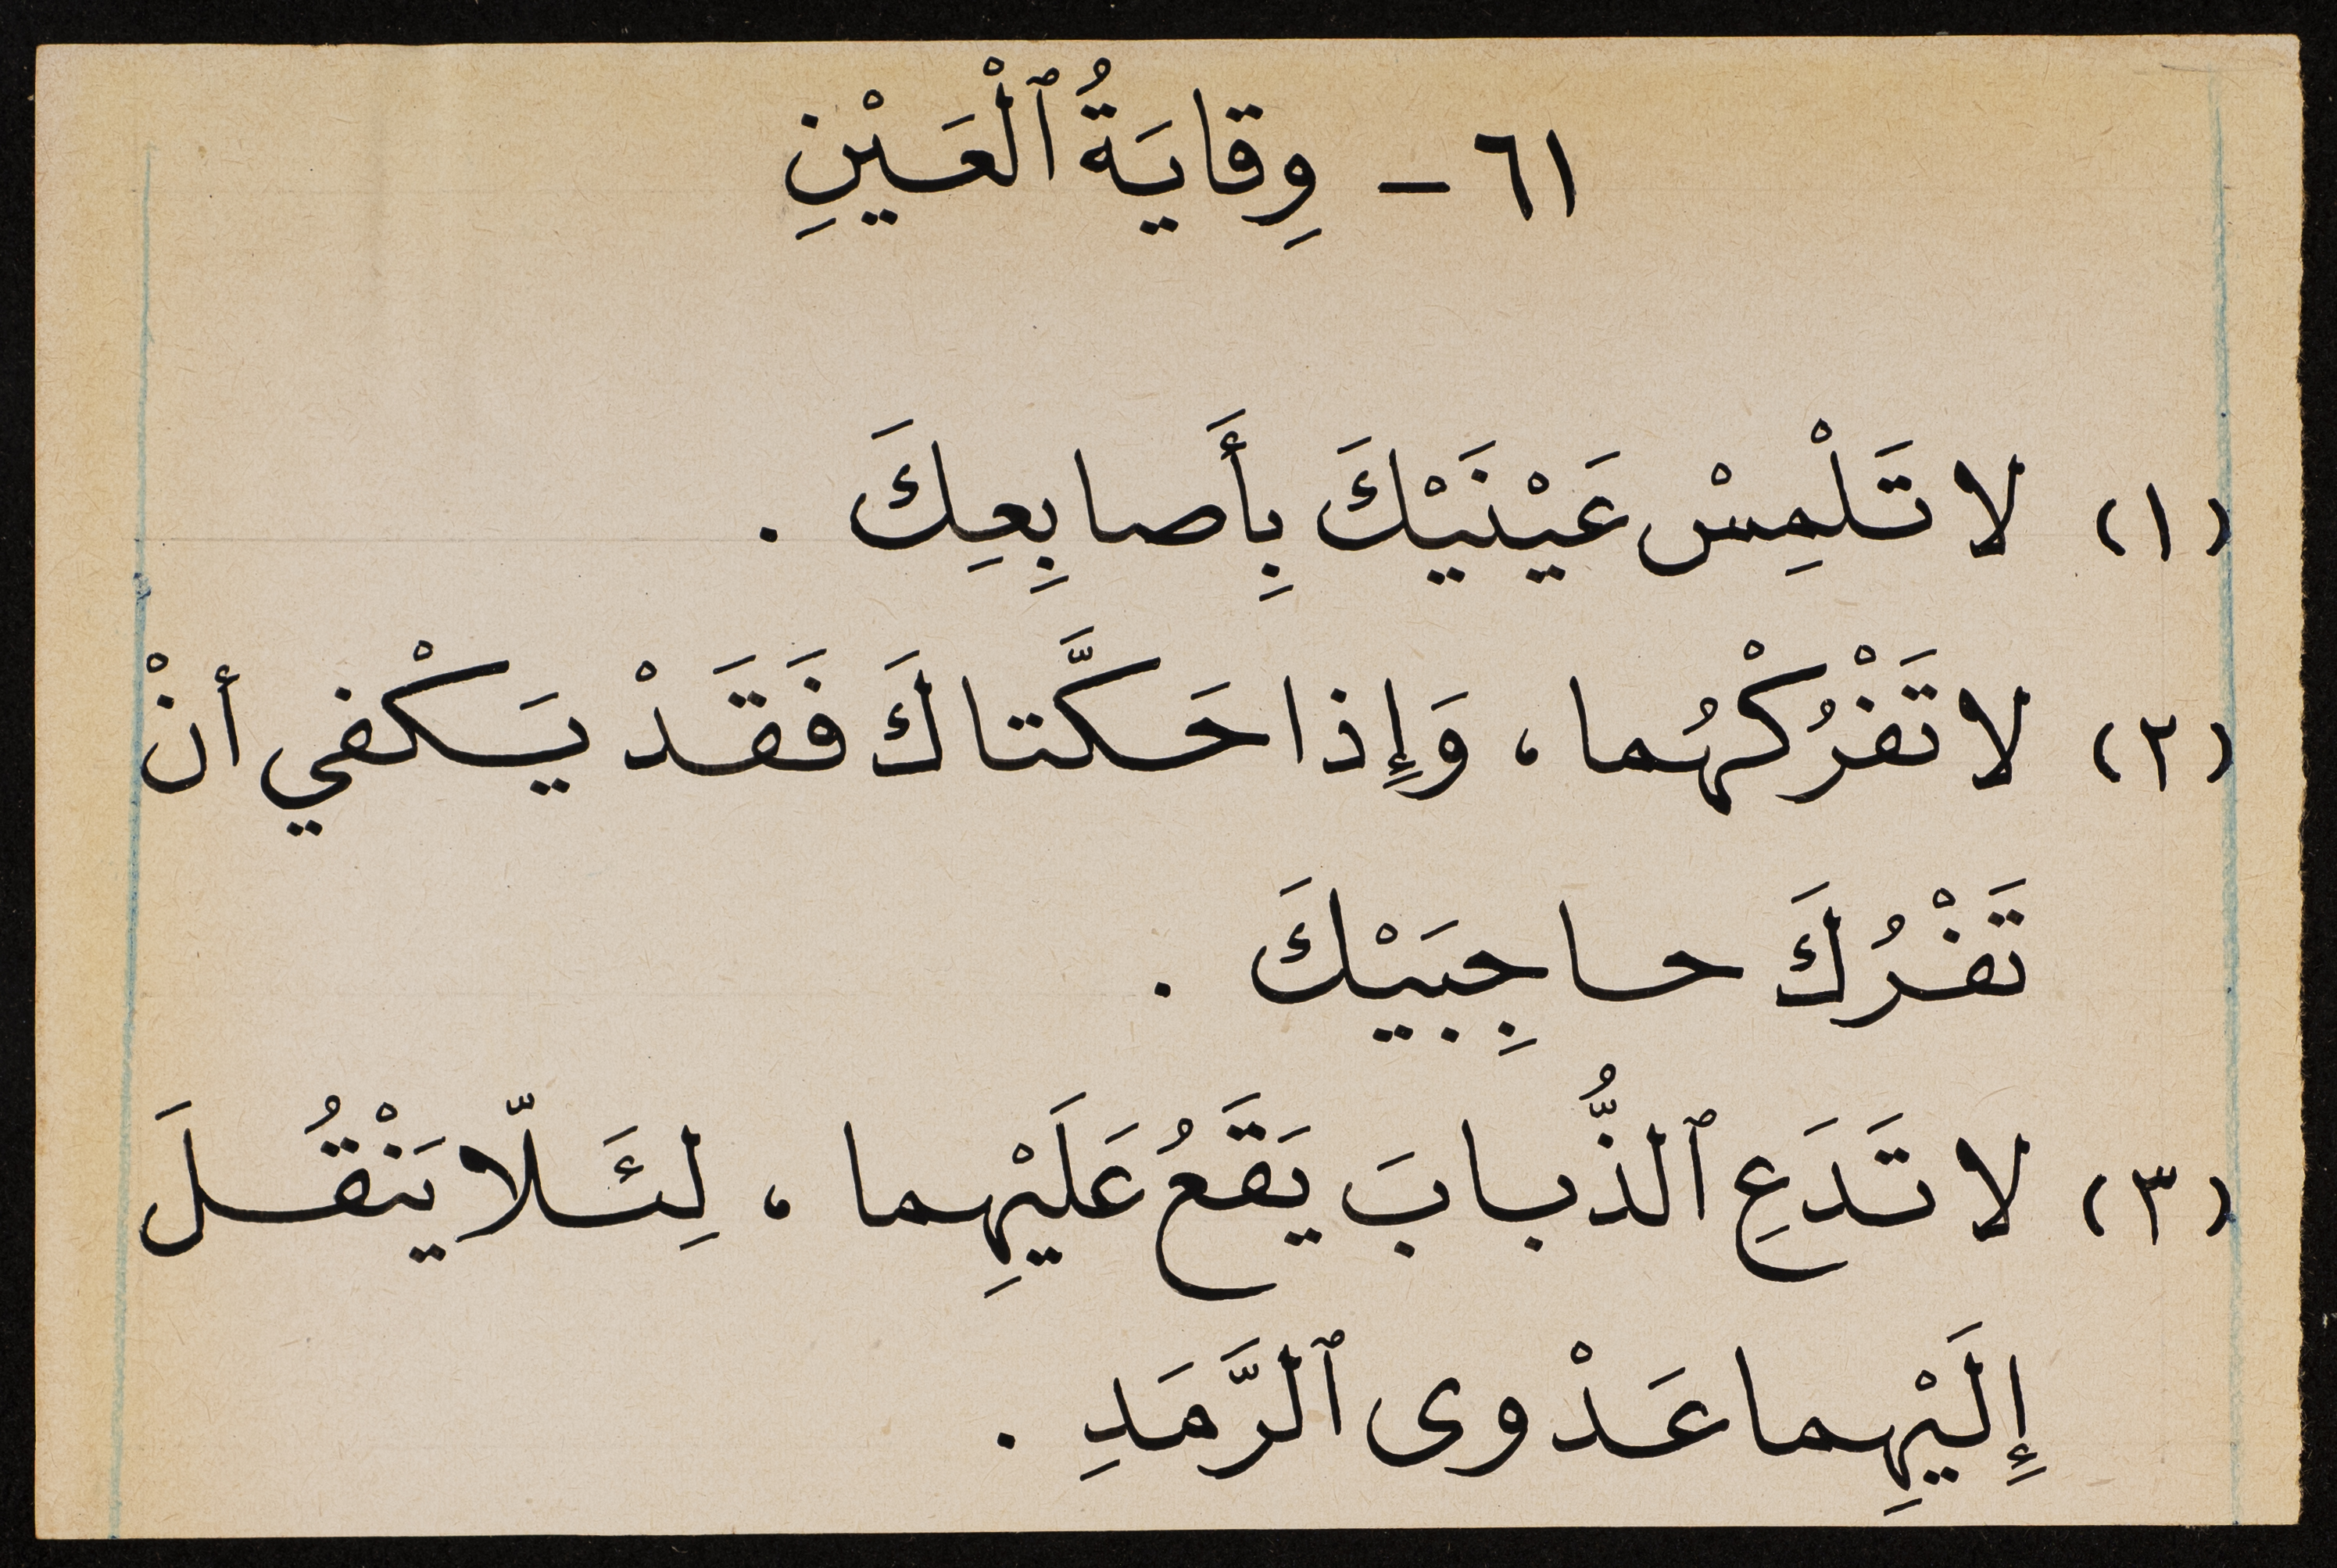 ٦١ - وِقايَةُ ٱلْعَيْنِ
(١) لا تَلْمِسْ عَيْنَيْكَ بِأَصابِعِكَ .
(٢) لا تَفْرُكْهُما ، وَإِذا حَكَّتاكَ فَقَدْ يَكْفي أنْ
تَفْرُكَ حاجِبَيْكَ .
(٣) لا تَدَعِ ٱلذُّبابَ يَقَعُ عَلَيْهِما ، لِئَلّا يَنْقُلَ
إِلَيْهِما عَدْوى ٱلرَّمَدِ .